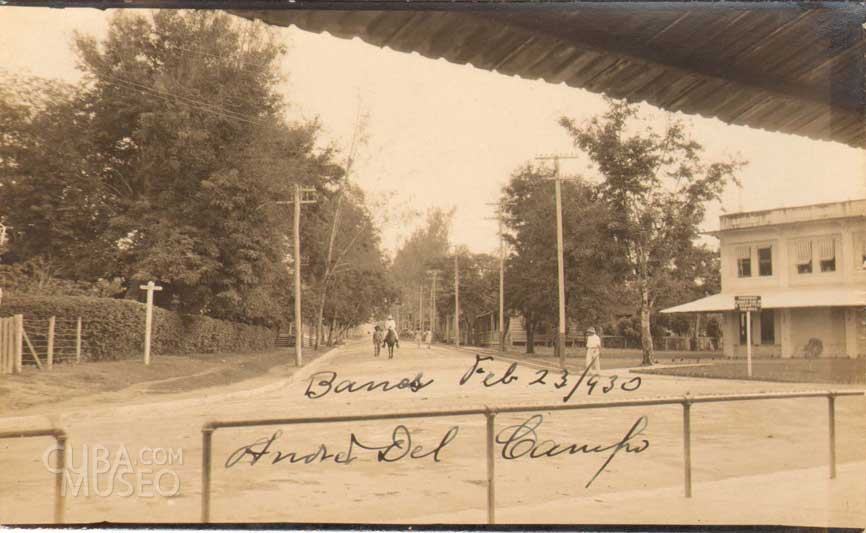 Banes Feb 23/930
André Del Campo
CUBA.COM
MUSEO